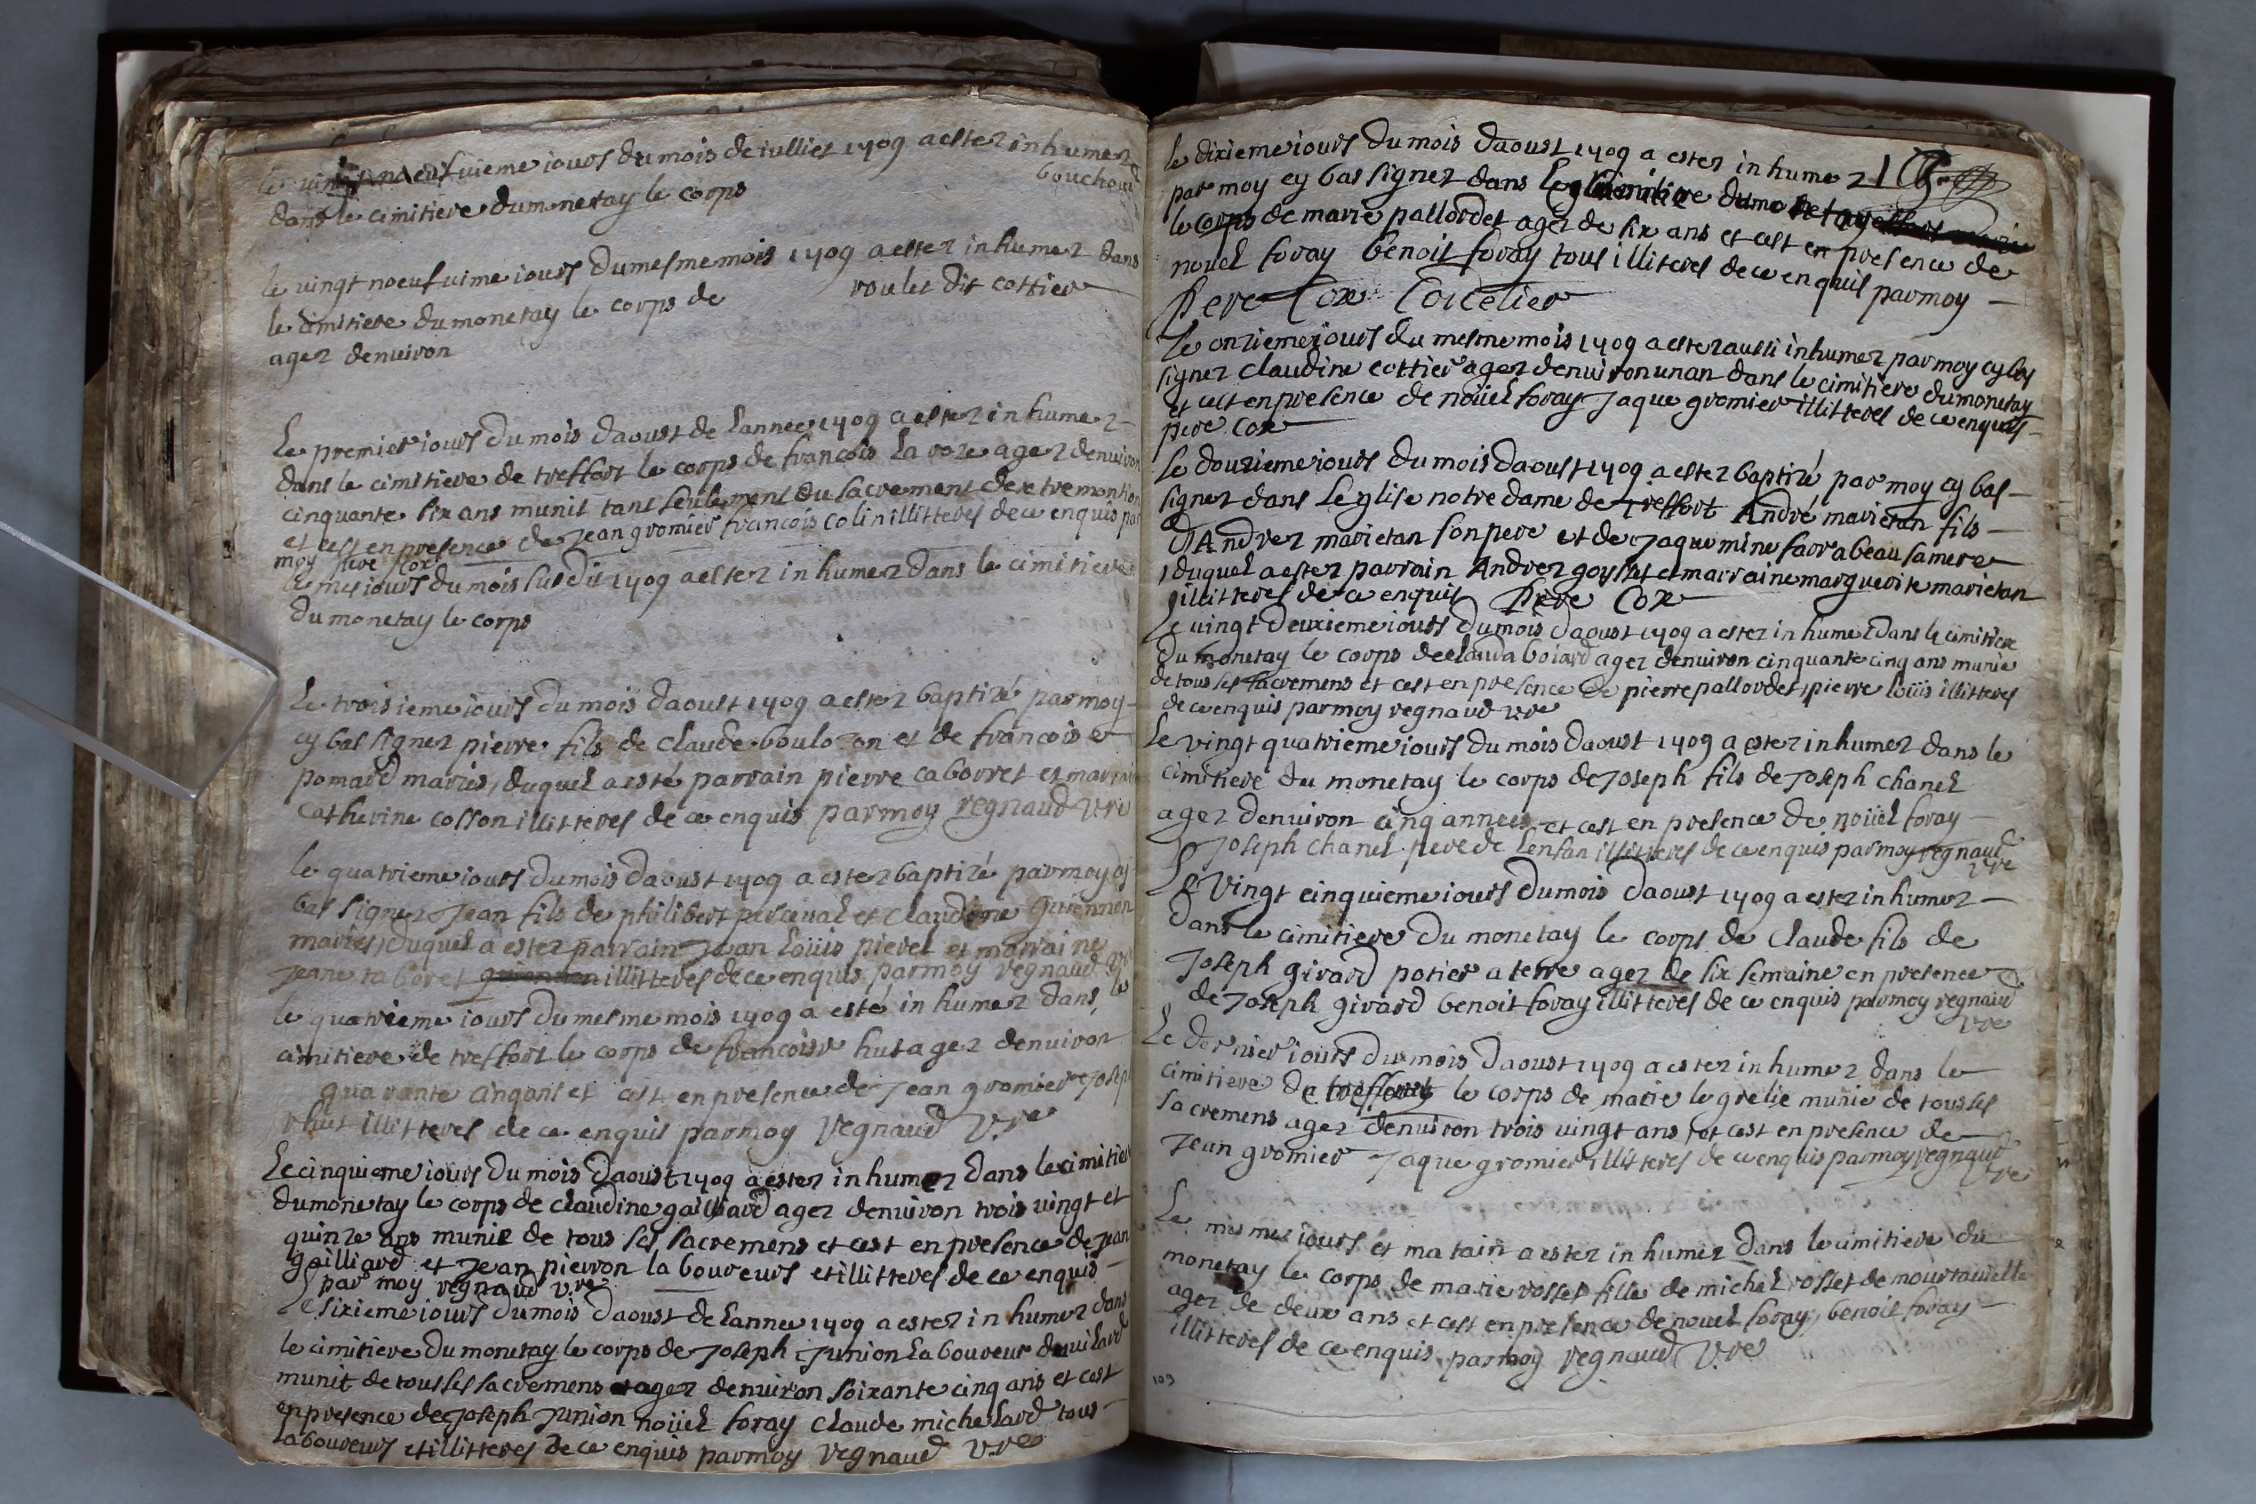 le vingt noeufuieme iours du mois de iullier 1709 a ester inhumer
bouchoud
dans le cimitiere du monetay le corps
le vingt noeufuime iours du mesme mois 1709 a ester inhumer dans
le cimitiere du monetay le corps de roulet dit cottier
agez denuiron
Le premier iours du mois daoust de Lannee 1709 a ester inhumer
dans le cimitiere de treffort le corps de francois La roze agez denuiron
cinquante six ans munit tant seulement du sacrement dextremontion
et cest en presence de Jean gromier francois colin illitteres de ce enquis par
moy pere Cox
le mes iours du mois susdit 1709 a ester inhumer dans le cimitiere
du monetay le corps
Le troisieme iours du mois daoust 1709 a ester baptizé par moy
cy bas signer pierre fils de claude boulozon et de francoise
pomard maries, duquel a esté parrain pierre caborret et marraine
Catherine cosson illitteres de ce enquis par moy regnaud vre
le quatrieme iours du mois daoust 1709 a ester baptizé par moy cy
bas signer Jean fils de philibert perceual et Claudine Guiennen
maries, duquel a ester parrain Jean Loüis pieret et marraine
Jeane taboret illitteres de ce enquis par moy regnaud vre
le quatrieme iours du mesme mois 1709 a esté inhumer dans le
cimitiere de treffort le corps de francoise hut agez denuiron
quarante cinq ans et cest en presence de Jean gromier Joseph
hut illitteres de ce enquis par moy regnaud vre
Le cinquieme iours du mois daoust 1709 a ester inhumer dans le cimitier
du monetay le corps de claudine gailliard agez denuiron trois vingt et
quinze ans munie de tous ses sacremens et cest en presence de Jean
gailliard et Jean pieuron laboureurs et illitteres de ce enquis
par moy regnaud vre
Le sixieme iours du mois daoust de Lannee 1709 a ester inhumer dans
le cimitiere du monetay le corps de Joseph Junion Laboureur du vilard
munit de tous ses sacremens et agez denuiron soixante cinq ans et cest
en presence de Joseph Junion noüel foray claude michelard tous
Laboureurs et illitteres de ce enquis par moy regnaud vre
le dixieme iours du mois daoust 1709 a ester inhumer
par moy cy bas signer dans le cimitiere du monetay
le corps de marie pallordet agez de six ans et cest en presence de
nouel foray benoit foray tous illiteres de ce enquis par moy
Pere Cox Corcelier
Le onzieme iours du mesme mois 1709 a ester aussi inhumer par moy cy bas
signer claudine cottier agez denuiron un an dans le cimitiere du monetay
et cest en presence de noüel foray Jaque gromier illitteres de ce enquis
pere Cox
Le douzieme iours du mois daoust 1709 a ester baptizé par moy cy bas
signer dans Leglise notre dame de treffort André marietan fils
dAndrez marietan son pere et de Jaquemine farrabeau sa mere
duquel a ester parrain Andrez goyffet et marraine marguerite marietan
illitteres de ce enquis Père Cox
Le vingt deuxieme iours du mois daoust 1709 a ester inhumer dans le cimitiere
du monetay le corps de clauda boiard agez denuiron cinquante cinq ans munie
de tous ses sacremens et cest en presence de pierre pallordet, pierre loüis illitteres
de ce enquis par moy regnaud vre
Le vingt quatrieme iours du mois daoust 1709 a ester inhumer dans le
cimitiere du monetay le corps de Joseph fils de Joseph chanel
agez denuiron cinq annees et cest en presence de noüel foray
Joseph chanel pere de Lenfan illitteres de ce enquis par moy regnaud
vre
Le Vingt cinquieme iours du mois daoust 1709 a ester inhumer
dans le cimitiere du monetay le corps de Claude fils de
Joseph girard potier a terre agez de six semaine en presence
de Joseph girard benoit foray illitteres de ce enquis par moy regnaud
vre
Le dernier iours du mois daoust 1709 a ester inhumer dans le
cimitiere de treffort le corps de marie le grelie munie de tous ses
sacremens agez denuiron trois vingt ans et cest en presence de
Jean gromier Jaque gromier illitteres de ce enquis par moy regnaud
vre
Le mesme iours et matain a ester inhumer dans le cimitiere du
monetay le corps de marie rosset fille de michel rosset de mourtauelle
agez de deux ans et cest en presence de nouel foray, benoit foray
illitteres de ce enquis par moy regnaud vre
109